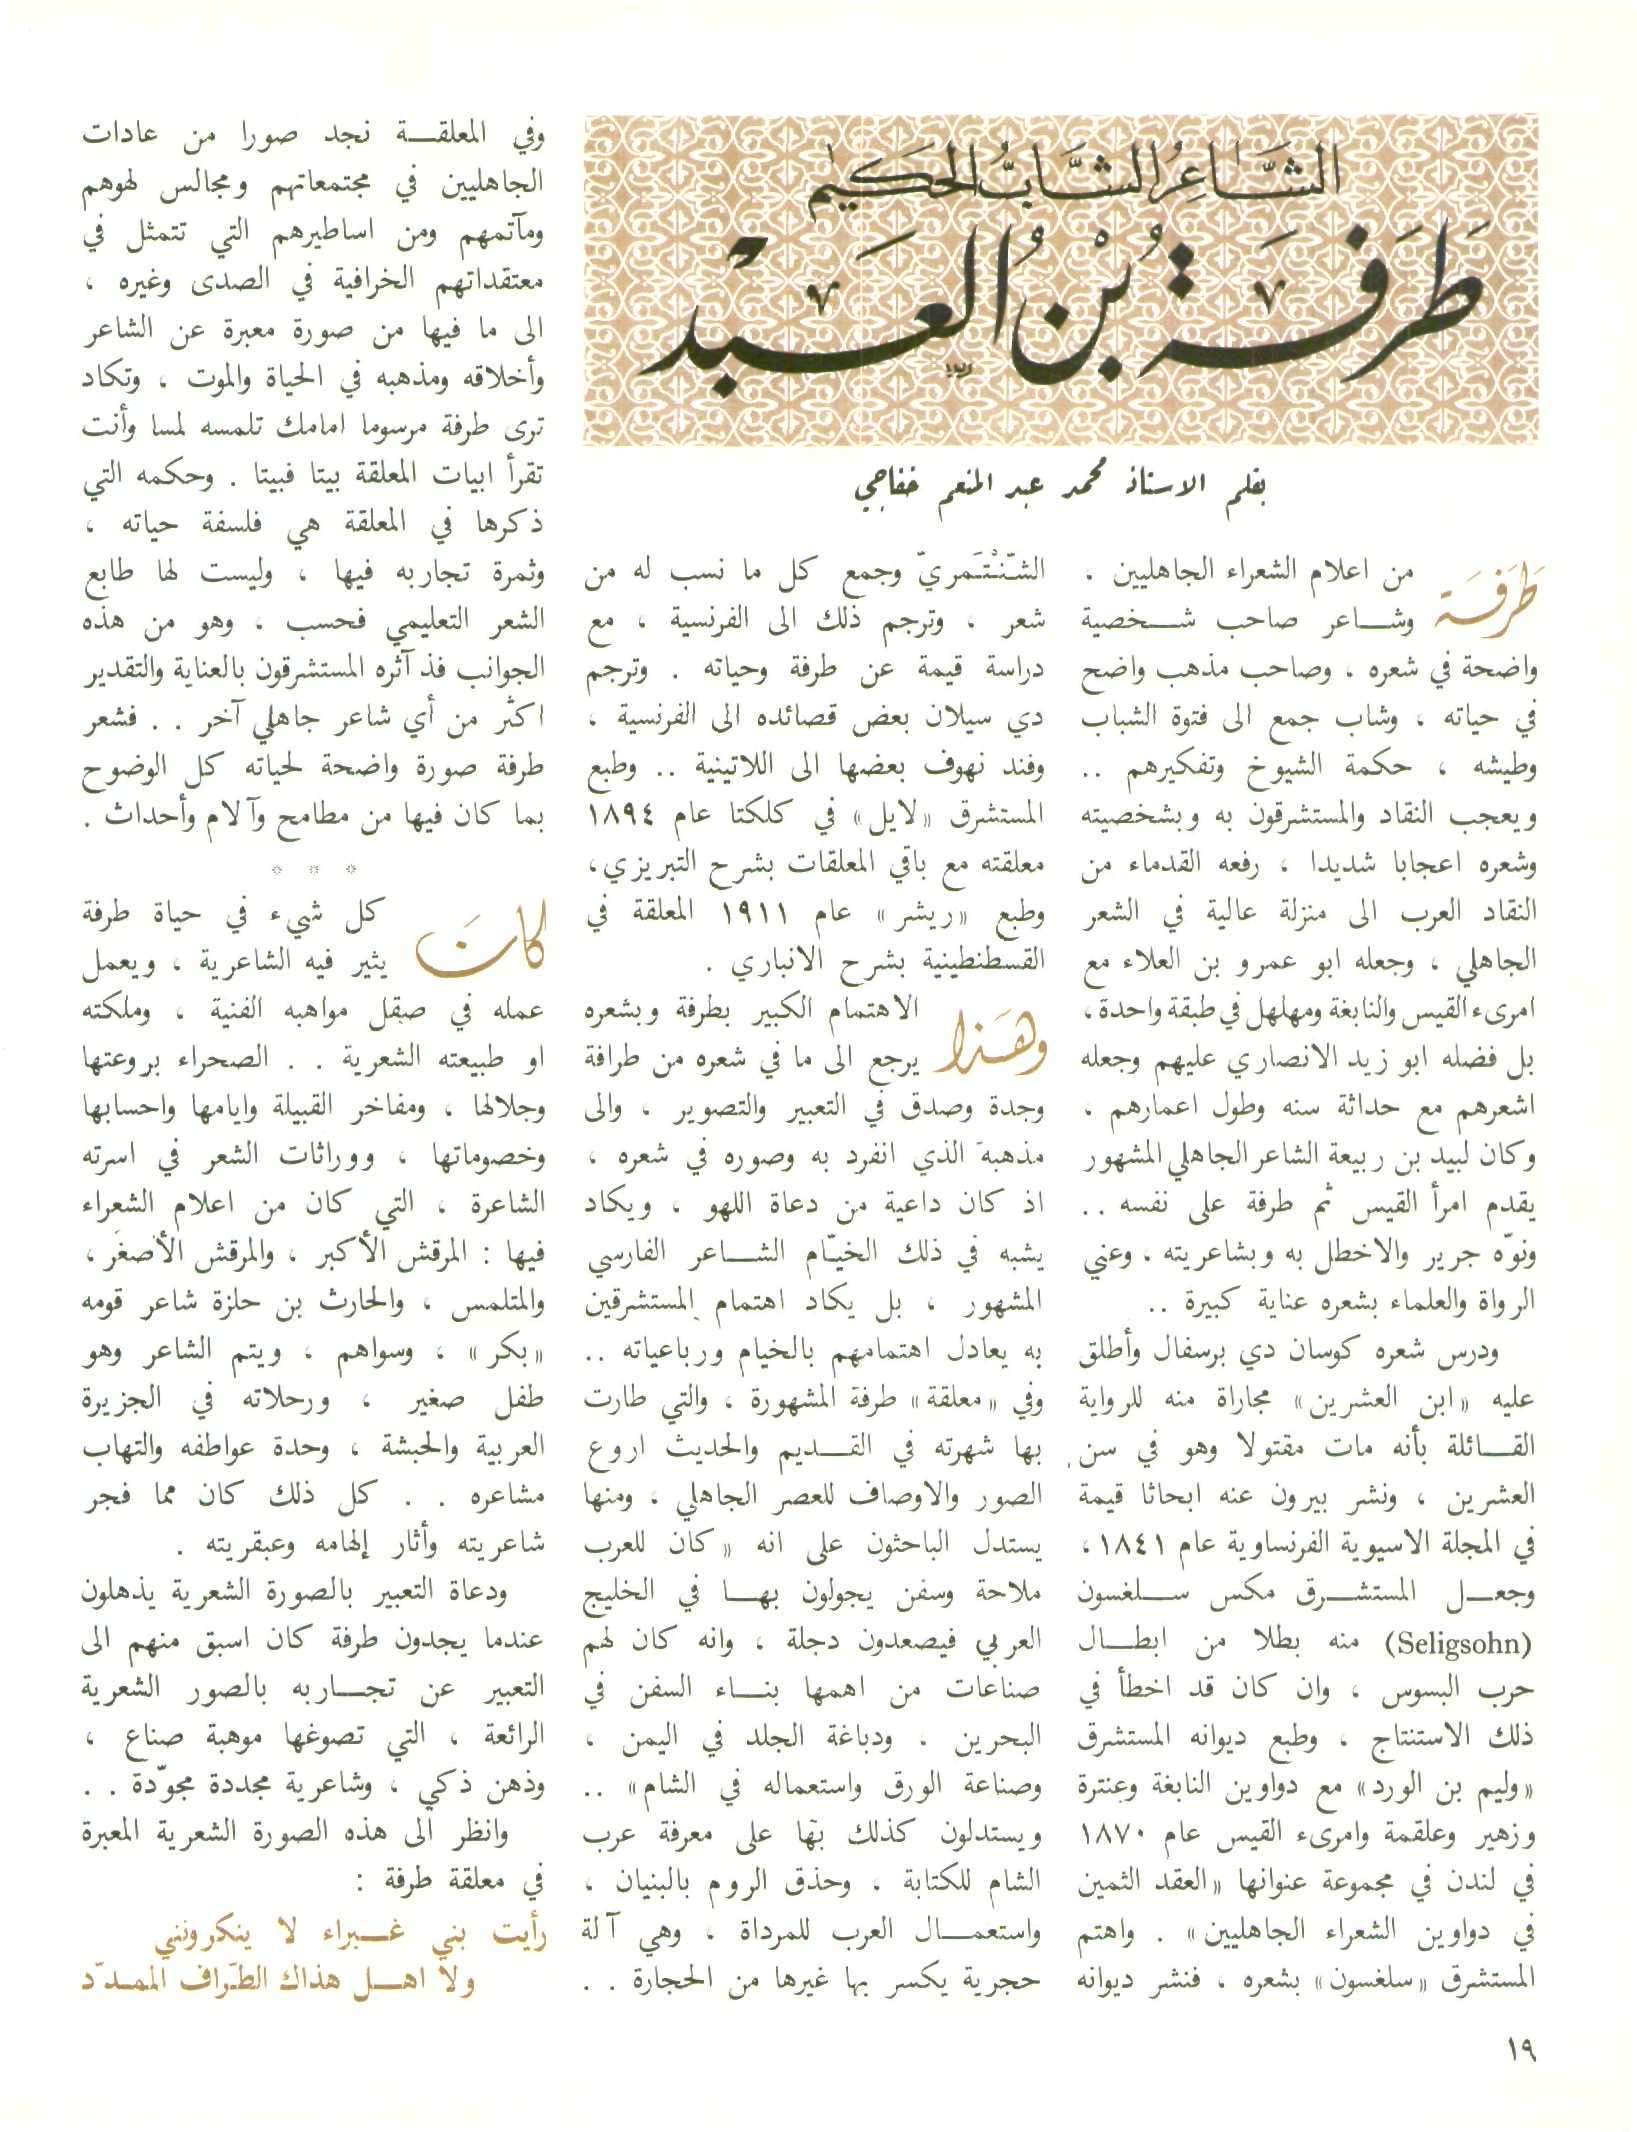 الشَّاعِرُ الشَّابُّ الحَكيم
طَرَفَة بْنُ العَبْد
بقلم الاستاذ محمد عبد المنعم خفاجي
طَرَفَة من اعلام الشعراء الجاهليين .
وشاعر صاحب شخصية
واضحة في شعره ، وصاحب مذهب واضح
في حياته ، وشاب جمع الى فتوة الشباب
وطيشه ، حكمة الشيوخ وتفكيرهم ..
ويعجب النقاد والمستشرقون به وبشخصيته
وشعره اعجابا شديدا ، رفعه القدماء من
النقاد العرب الى منزلة عالية في الشعر
الجاهلي ، وجعله ابو عمرو بن العلاء مع
امرىء القيس والنابغة ومهلهل في طبقة واحدة ،
بل فضله ابو زيد الانصاري عليهم وجعله
اشعرهم مع حداثة سنه وطول اعمارهم ،
وكان لبيد بن ربيعة الشاعر الجاهلي المشهور
يقدم امرأ القيس ثم طرفة على نفسه ..
ونوّه جرير والاخطل به وبشاعريته ، وعني
الرواة والعلماء بشعره عناية كبيرة ..
ودرس شعره كوسان دي برسفال وأطلق
عليه «ابن العشرين» مجاراة منه للرواية
القائلة بأنه مات مقتولا وهو في سن
العشرين ، ونشر بيرون عنه ابحاثا قيمة
في المجلة الاسيوية الفرنساوية عام ١٨٤١ ،
وجعل المستشرق مكس سلغسون
(Seligsohn) منه بطلا من ابطال
حرب البسوس ، وان كان قد اخطأ في
ذلك الاستنتاج ، وطبع ديوانه المستشرق
«وليم بن الورد» مع دواوين النابغة وعنترة
وزهير وعلقمة وامرىء القيس عام ١٨٧٠
في لندن في مجموعة عنوانها «العقد الثمين
في دواوين الشعراء الجاهليين» . واهتم
المستشرق «سلغسون» بشعره ، فنشر ديوانه
الشَّنْتَمَريّ وجمع كل ما نسب له من
شعر ، وترجم ذلك الى الفرنسية ، مع
دراسة قيمة عن طرفة وحياته . وترجم
دي سيلان بعض قصائده الى الفرنسية ،
وفند نهوف بعضها الى اللاتينية .. وطبع
المستشرق «لايل» في كلكتا عام ١٨٩٤
معلقته مع باقي المعلقات بشرح التبريزي ،
وطبع «ريشر» عام ١٩١١ المعلقة في
القسطنطينية بشرح الانباري .
وهَذا الاهتمام الكبير بطرفة وبشعره
يرجع الى ما في شعره من طرافة
وجدة وصدق في التعبير والتصوير ، والى
مذهبه الذي انفرد به وصوره في شعره ،
اذ كان داعية من دعاة اللهو ، ويكاد
يشبه في ذلك الخيّام الشاعر الفارسي
المشهور ، بل يكاد اهتمام المستشرقين
به يعادل اهتمامهم بالخيام ورباعياته ..
وفي «معلقة» طرفة المشهورة ، والتي طارت
بها شهرته في القديم والحديث اروع
الصور والاوصاف للعصر الجاهلي ، ومنها
يستدل الباحثون على انه «كان للعرب
ملاحة وسفن يجولون بها في الخليج
العربي فيصعدون دجلة ، وانه كان لهم
صناعات من اهمها بناء السفن في
البحرين . ودباغة الجلد في اليمن ،
وصناعة الورق واستعماله في الشام» ..
ويستدلون كذلك بها على معرفة عرب
الشام للكتابة ، وحذق الروم بالبنيان ،
واستعمال العرب للمرداة ، وهي آلة
حجرية يكسر بها غيرها من الحجارة . .
وفي المعلقة نجد صورا من عادات
الجاهليين في مجتمعاتهم ومجالس لهوهم
ومآتمهم ومن اساطيرهم التي تتمثل في
معتقداتهم الخرافية في الصدى وغيره ،
الى ما فيها من صورة معبرة عن الشاعر
وأخلاقه ومذهبه في الحياة والموت ، وتكاد
ترى طرفة مرسوما امامك تلمسه لمسا وأنت
تقرأ ابيات المعلقة بيتا فبيتا . وحكمه التي
ذكرها في المعلقة هي فلسفة حياته ،
وثمرة تجاربه فيها ، وليست لها طابع
الشعر التعليمي فحسب ، وهو من هذه
الجوانب فذ آثره المستشرقون بالعناية والتقدير
اكثر من أي شاعر جاهلي آخر . . فشعر
طرفة صورة واضحة لحياته كل الوضوح
بما كان فيها من مطامح وآلام وأحداث .
* * *
كانَ كل شيء في حياة طرفة
يثير فيه الشاعرية ، ويعمل
عمله في صقل مواهبه الفنية ، وملكته
او طبيعته الشعرية . . الصحراء بروعتها
وجلالها ، ومفاخر القبيلة وايامها واحسابها
وخصوماتها ، ووراثات الشعر في اسرته
الشاعرة ، التي كان من اعلام الشعراء
فيها : المرقش الأكبر ، والمرقش الأصغر ،
والمتلمس ، والحارث بن حلزة شاعر قومه
«بكر» ، وسواهم ، ويتم الشاعر وهو
طفل صغير ، ورحلاته في الجزيرة
العربية والحبشة ، وحدة عواطفه والتهاب
مشاعره . . كل ذلك كان مما فجر
شاعريته وأثار إلهامه وعبقريته .
ودعاة التعبير بالصورة الشعرية يذهلون
عندما يجدون طرفة كان اسبق منهم الى
التعبير عن تجاربه بالصور الشعرية
الرائعة ، التي تصوغها موهبة صناع ،
وذهن ذكي ، وشاعرية مجددة مجوّدة . .
وانظر الى هذه الصورة الشعرية المعبرة
في معلقة طرفة :
رأيت بني غبراء لا ينكرونني
ولا اهل هذاك الطّراف الممدّد
١٩